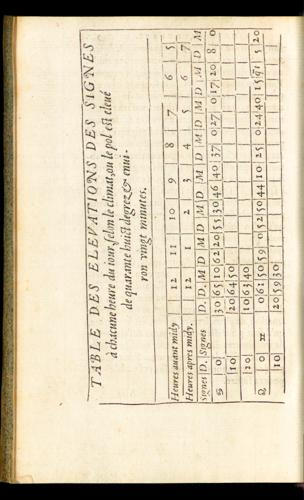 TABLE DES ELEVATIONS DES SIGNES
à chacune heure du iour, selon le climat, ou le pol est eleué
de quarante huict degrez & enui-
ron vingt minutes.
Heures auant midy 12 11 10 9 8 7 6 5
Heures apres midy. 12 1 2 3 4 5 6 7
Signes D. Signes D. D. M D M D M D M D M D M D M D M
♋ 0 30 65 10 62 20 55 30 46 40 37 0 27 0 17 20 8 0
10 20 64 50
20 10 63 40
♌ 0 ♊ 0 61 50 59 0 52 50 44 10 25 0 24 40 15 5 20
10 20 59 30